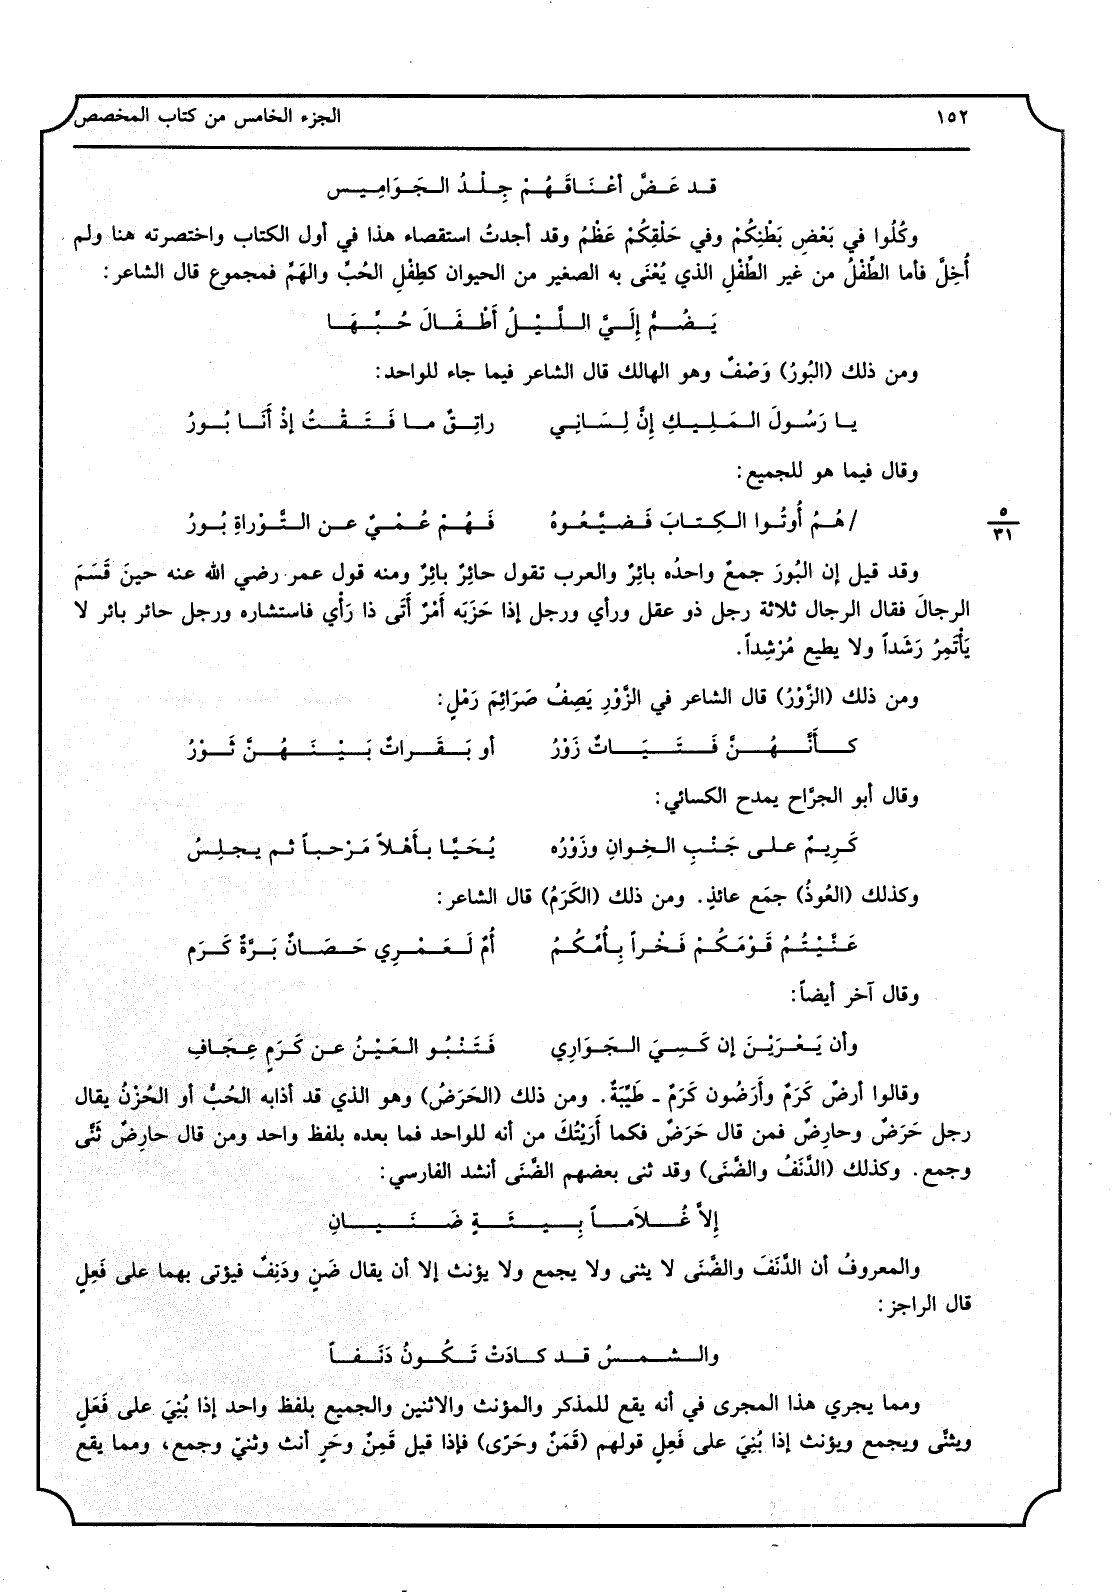 ١٥٢ الجزء الخامس من كتاب المخصص
قد عَضَّ أعْنَاقَهُمْ جِلْدُ الجَوَامِيس
وكُلُوا في بَعْضِ بَطْنِكُمْ وفي حَلْقِكُمْ عَظْمُ وقد أجدتُ استقصاء هذا في أول الكتاب واختصرته هنا ولم
أُخِلَّ فأما الطِّفْلُ من غير الطِّفْلِ الذي يُعْنَى به الصغير من الحيوان كطِفْلِ الحُبِّ والهَمِّ فمجموع قال الشاعر:
يَضُمُّ إِلَيَّ اللَّيْلُ أَطْفَالَ حُبِّهَا
ومن ذلك (البُورُ) وَصْفٌ وهو الهالك قال الشاعر فيما جاء للواحد:
يا رَسُولَ المَلِيكِ إِنَّ لِسَانِي راتِقٌ ما فَتَقْتُ إذْ أَنَا بُورُ
وقال فيما هو للجميع:
/هُمُ أُوتُوا الكِتابَ فَضيَّعُوهُ فَهُمْ عُمْيٌ عن التَّوْراةِ بُورُ
٥
٣١
وقد قيل إن البُورَ جمعٌ واحدُه بائِرٌ والعرب تقول حائِرٌ بائِرٌ ومنه قول عمر رضي الله عنه حينَ قَسَمَ
الرجالَ فقال الرجال ثلاثة رجل ذو عقل ورأي ورجل إذا حَزَبَه أَمْرٌ أَتَى ذا رَأْي فاستشاره ورجل حائر بائر لا
يَأْتَمِرُ رَشَداً ولا يطيع مُرْشِداً.
ومن ذلك (الزَّوْرُ) قال الشاعر في الزَّوْرِ يَصِفُ صَرَائِمَ رَمْلٍ:
كأَنَّهُنَّ فَتَيَاتٌ زَوْرُ أو بَقَراتٌ بَيْنَهُنَّ ثَوْرُ
وقال أبو الجرَّاح يمدح الكسائي:
كَرِيمٌ على جَنْبِ الخِوانِ وزَوْرُه يُحَيَّا بأَهْلاً مَرْحباً ثم يجلِسُ
وكذلك (العُوذُ) جمَع عائذٍ. ومن ذلك (الكَرَمُ) قال الشاعر:
عَنَّيْتُمُ قَوْمَكُمْ فَخْراً بِأُمِّكُمُ أُمٌ لَعَمْرِي حَصَانٌ بَرَّةٌ كَرَم
وقال آخر أيضاً:
وأن يَعْرَيْنَ إن كَسِيَ الجَوَارِي فَتَنْبُو العَيْنُ عن كَرَمٍ عِجَافِ
وقالوا أرضٌ كَرَمٌ وأَرَضُون كَرَمٌ - طَيِّبَةٌ. ومن ذلك (الحَرَضُ) وهو الذي قد أذابه الحُبُّ أو الحُزْنُ يقال
رجل حَرَضٌ وحارِضٌ فمن قال حَرَضٌ فكما أَرَيْتُكَ من أنه للواحد فما بعده بلفظ واحد ومن قال حارِضٌ ثَنَّى
وجمع. وكذلك (الدَّنَفُ والضَّنَى) وقد ثنى بعضهم الضَّنَى أنشد الفارسي:
إِلاَّ غُلاَماً بِيئَةٍ ضَنَيَانِ
والمعروفُ أن الدَّنَفَ والضَّنَى لا يثنى ولا يجمع ولا يؤنث إلا أن يقال ضَنٍ ودَنِفٌ فيؤتى بهما على فَعِلٍ
قال الراجز:
والشمسُ قد كادَتْ تَكُونُ دَنَفاً
ومما يجري هذا المجرى في أنه يقع للمذكر والمؤنث والاثنين والجميع بلفظ واحد إذا بُنِيَ على فَعَلٍ
ويثنَّى ويجمع ويؤنث إذا بُنِيَ على فَعِلٍ قولهم (قَمَنٌ وحَرًى) فإذا قيل قَمِنٌ وحَرٍ أنث وثنيّ وجمع، ومما يقع